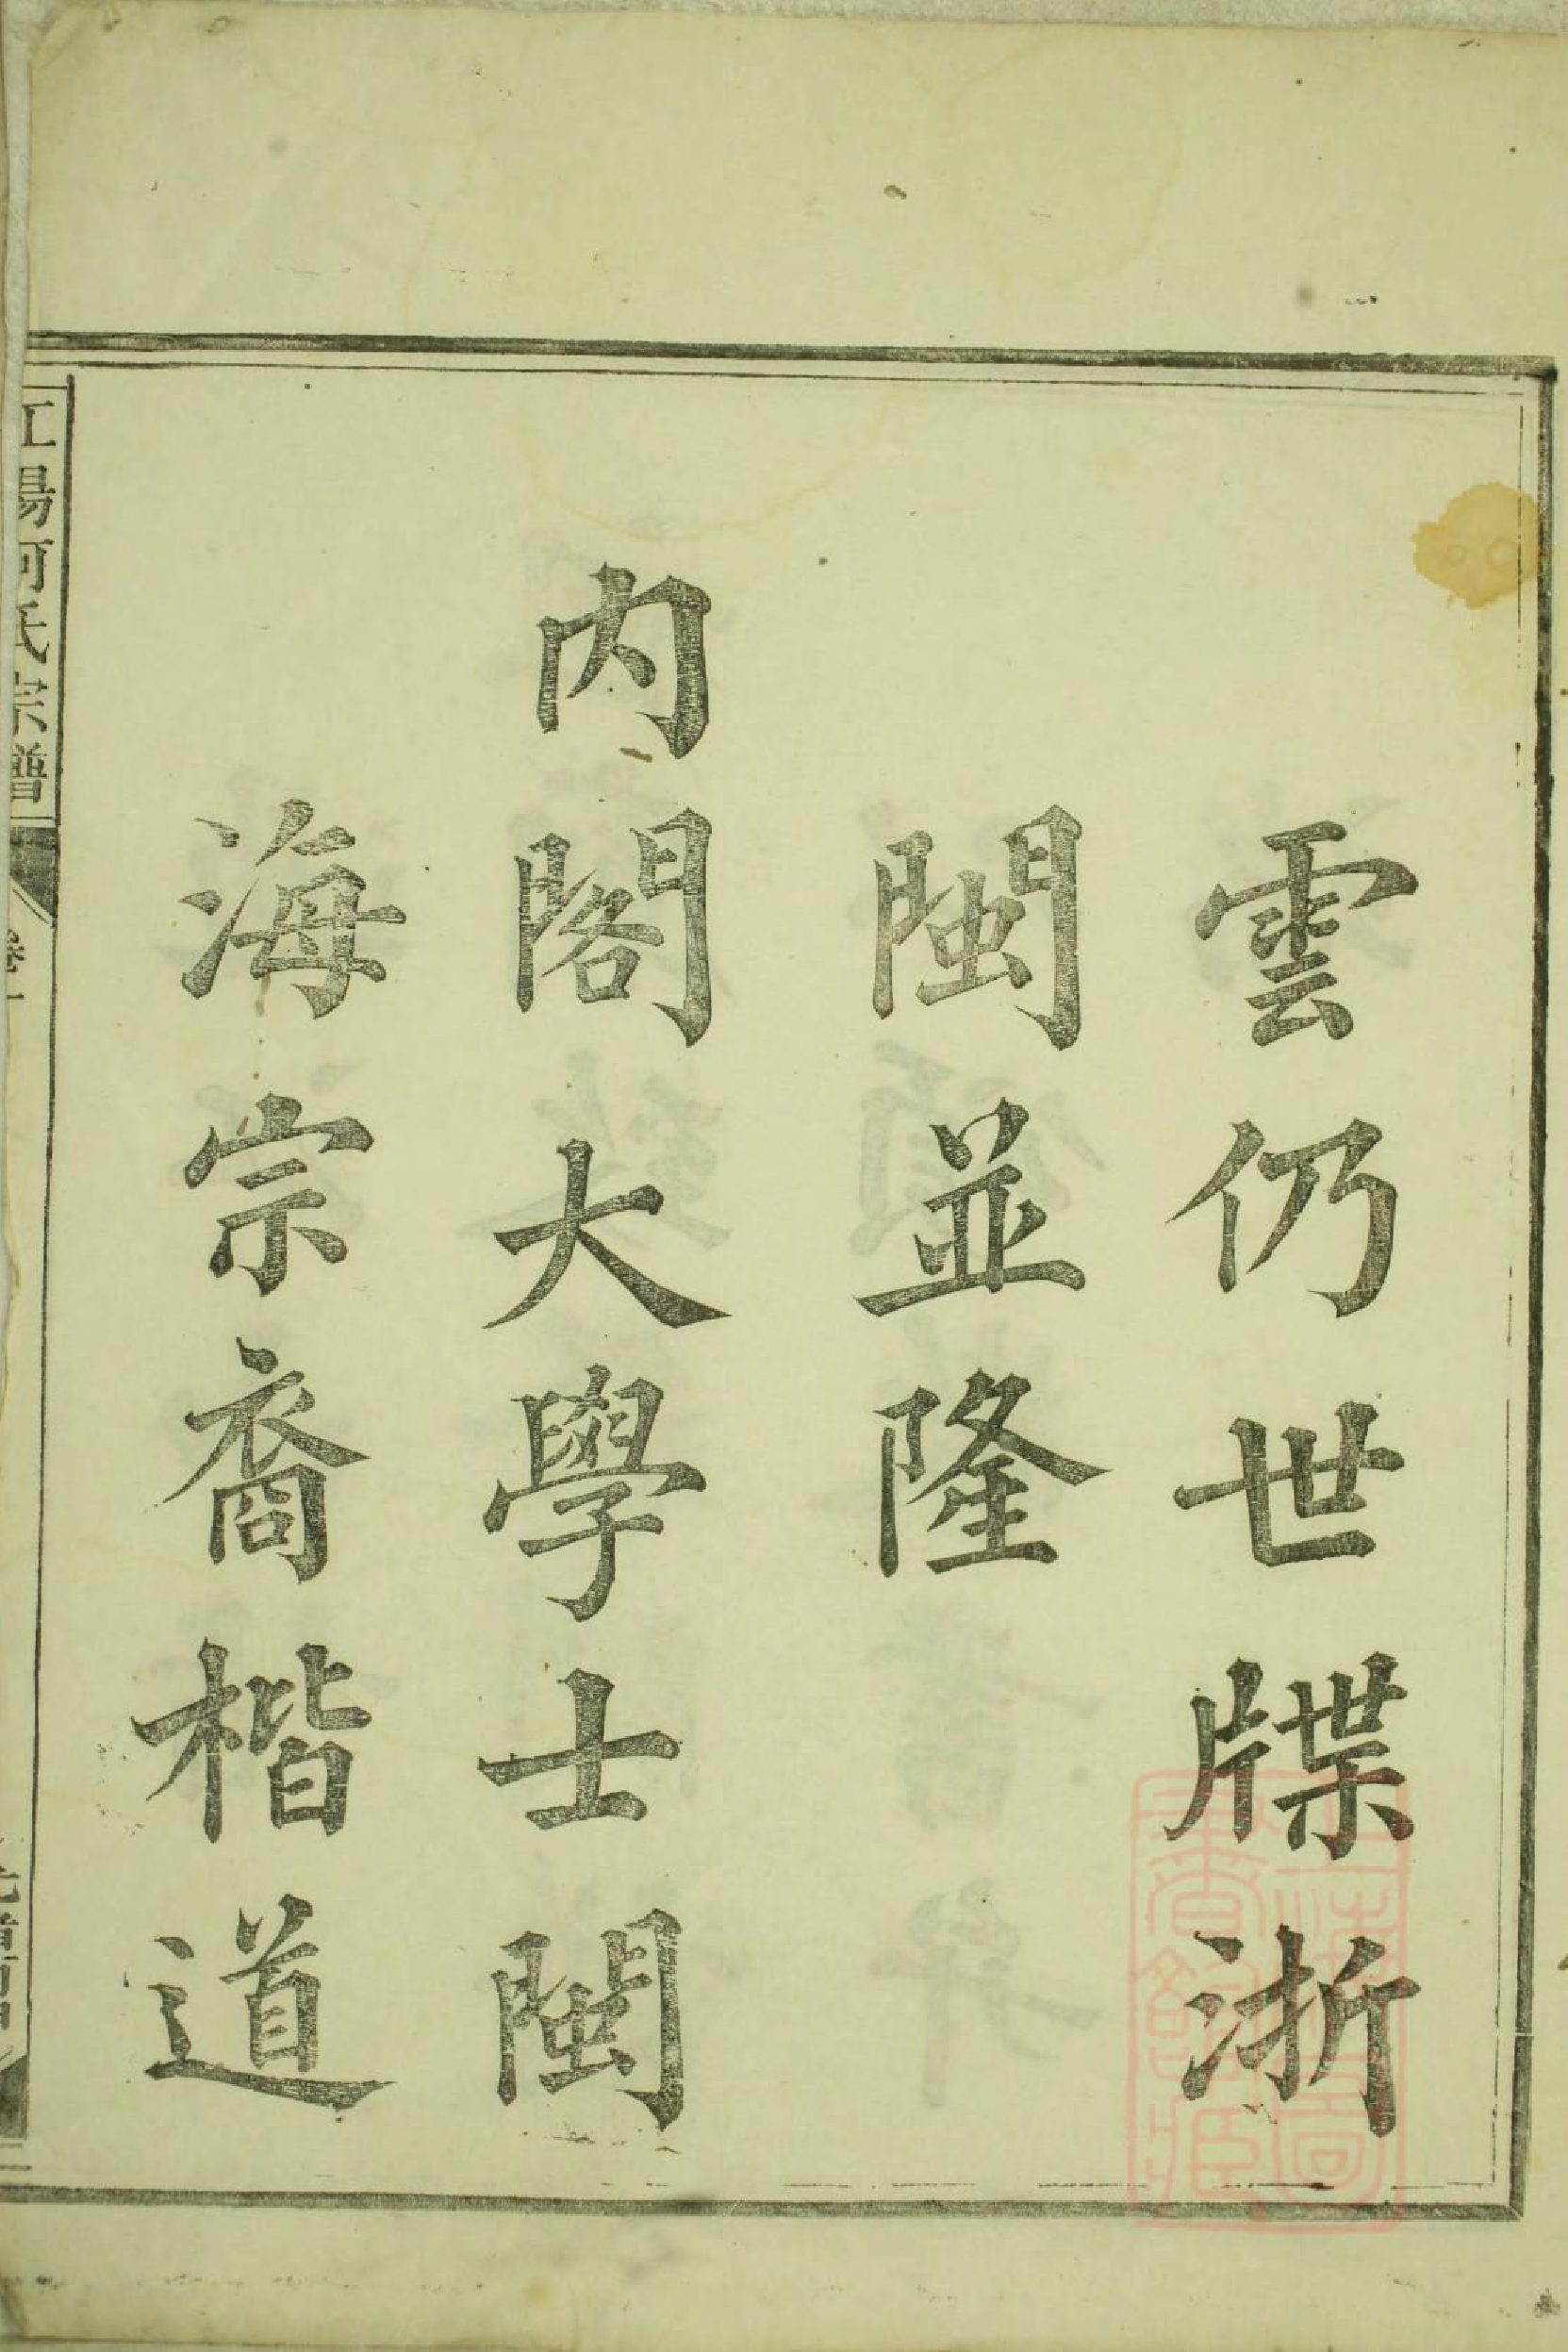 雲仍世牒浙
閩並隆
内閣大學士閩
海宗裔楷道
江陽何氏宗譜
卷一